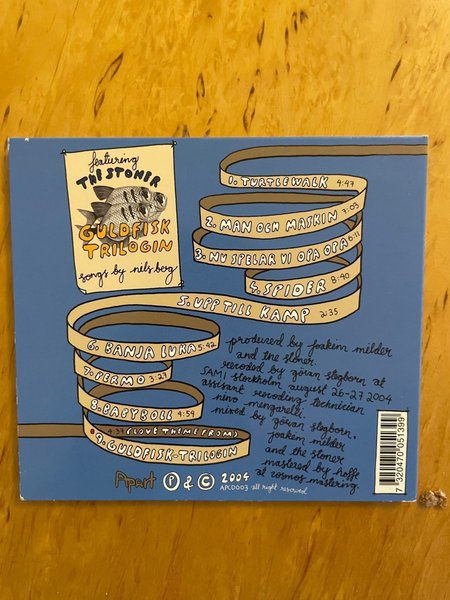 featuring
THE STONER
GULDFISK
TRILOGIN
songs by nils berg
1. TURTLEWALK 4:47
2. MAN OCH MASKIN 7:03
3. NU SPELAR VI OPA OPA 6:11
4. SPIDER 8:40
5. UPP TILL KAMP 2:35
6. BANJA LUKA 5:42
7. PERMO 3:27
8. BABYBOLL 4:59
4:37 (LOVE THEME FROM)
9. GULDFISK-TRILOGIN
produced by joakim milder
and the stoner.
recoded by göran stegborn at
SAMI stockholm august 26-27 2004
assisant recoding technician
nino mengarelli.
mixed by göran stegborn,
joakim milder
and the stoner
mastered by hoffe
at cosmos mastering.
Apart Ⓟ & © 2004
APCD003 all right reserved
7 320470 051399